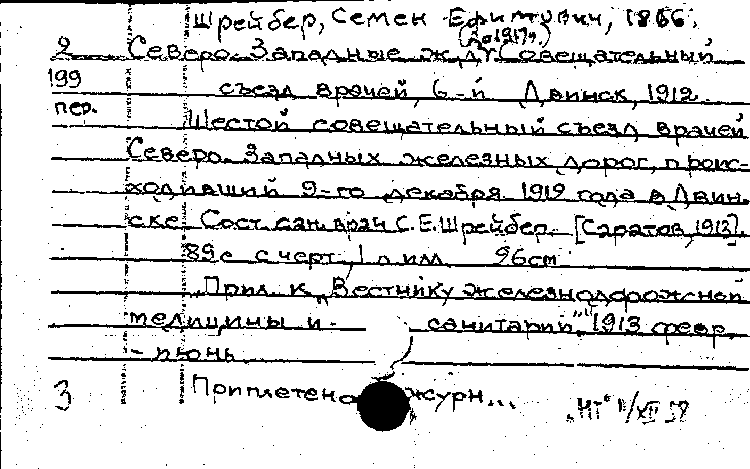 Шрейбер, Семен Ефимович, 1866.
(до 1917г.)
2 Северо-Западные ж.д. Совещательный
199 съезд врачей, 6-й Двинск, 1912.
пер. Шестой совещательный съезд врачей
Северо-Западных железных дорог, проис-
ходивший 9-го декабря 1912 года в Двин-
ске. Сост. сан. врач С.Е. Шрейбер. [Саратов, 1913].
89 с. с черт., 1 л. илл. 26 cm
Прил. к "Вестнику железнодорожной
медицины и санитарии", 1913 февр.
- июнь
3 Приплетено журн...
"НТ" 11/XII 58